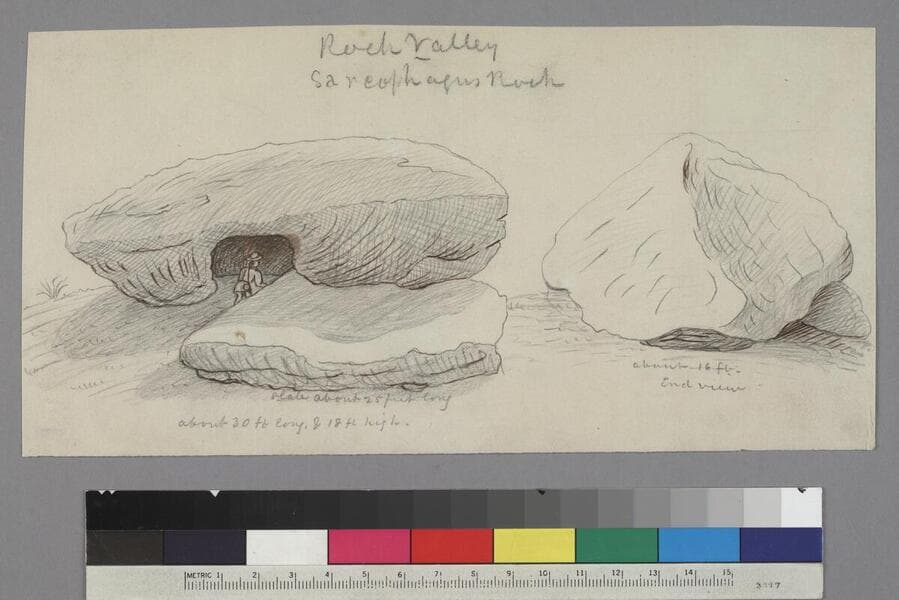 Rock Valley
Sarcophagus Rock
about 16 ft.
End view
slab about 25 feet long
about 30 ft long, & 18 ft high.
METRIC 1 2 3 4 5 6 7 8 9 10 11 12 13 14 15